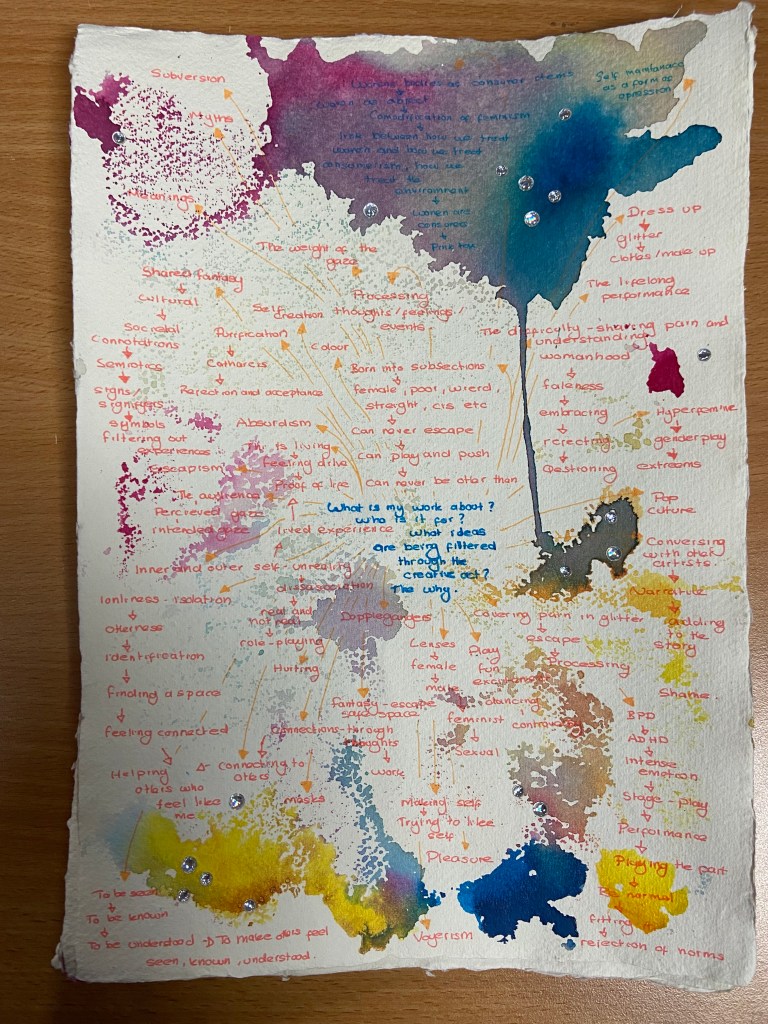 Subversion
Myths
Meanings
Womens bodies as consumer items
women as object
Comodification of feminism
link between how we treat
women and how we treat
consumerism, how we
treat the
environment
women are
consumers
Pink tax
Self maintanace
as a form of
opression
Dress up
glitter
clothes/make up
The lifelong
performance
The weight of the
gaze
Processing
thoughts/feelings/
events
Self
creation
Colour
Shared fantasy
cultural
Societal
connotations
Semiotics
signs/
signifyers
symbols
filtering out
experiences
Purification
Catharcis
Rejection and acceptance
Absurdism
This is living
feeling drive
Proof of life
Escapism
The audience
Percieved gaze
intended gaze
lived experience
Born into subsections
female, poor, wierd,
streight, cis etc
Can never escape
Can play and push
Can never be other than
The difficulty-sharing pain and
understanding
womanhood
faleness
embracing
rejecting
Questioning
Hyperfemine
genderplay
extreems
Pop
culture
Conversing
with other
artists.
Narrative
adding
to the
story
Shame
What is my work about?
who is it for?
what ideas
are being filtered
through the
creative act?
The why.
Inner and outer self-unreality
dissasociation
real and
not real
role-playing
Hurting
Dopplegangers
lonliness-isolation
otherness
identification
finding a space
feeling connected
Helping
others who
feel like
me
connecting to
others
masks
Fantasy-escape
safe space
connections-through
thoughts
work
Lenses
female
male
Play
fun
excitement
dancing
feminist controversy
Sexual
Covering pain in glitter
escape
Processing
BPD
ADHD
Intense
emotion
Stage-play
Performance
Playing the part
Be normal
fitting in
rejection of norms
Making self
Trying to like
self
Pleasure
Voyerism
To be seen
To be known
To be understood → To make others feel
seen, known, understood.